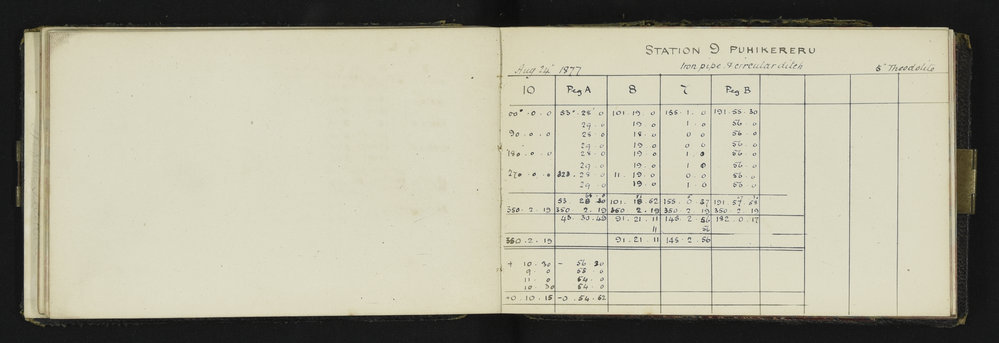 STATION 9 PUHIKERERU
Aug 24 1877 Iron pipe & circular ditch 5" Theodolite
10 Peg A 8 7 Peg B
00° 0 0 53° 28' 0 101 19 0 155 1 0 191 55 30
29 0 19 0 1 0 56 0
90 0 0 28 0 18 0 0 0 56 0
29 0 19 0 0 0 56 0
180 0 0 28 0 19 0 1 0 56 0
29 0 19 0 1 0 56 0
270 0 0 323 28 0 11 19 0 0 0 56 0
29 0 19 0 1 0 56 0
53 28 30 101 18 52 155 0 37 191 57 58
350 2 19 350 2 19 350 2 19 350 2 19 350 2 19
43 30 49 91 21 11 145 2 56 182 0 17
11 56
350 2 19 91 21 11 145 2 56
+ 10 30 - 56 30
9 0 55 0
11 0 54 0
10 30 54 0
+0 10 15 -0 54 52